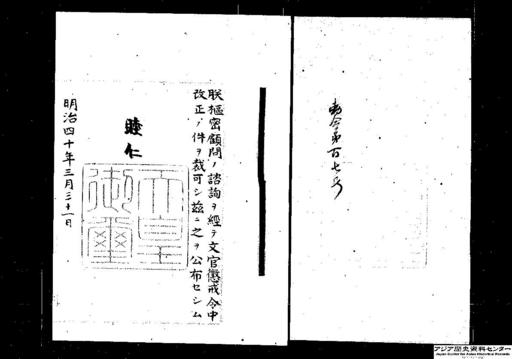 勅令第百七号
朕枢密顧問ノ諮詢ヲ経テ文官懲戒令中
改正ノ件ヲ裁可シ茲ニ之ヲ公布セシム
睦仁
天皇御璽
明治四十年三月三十一日
アジア歴史資料センター
Japan Center for Asian Historical Records